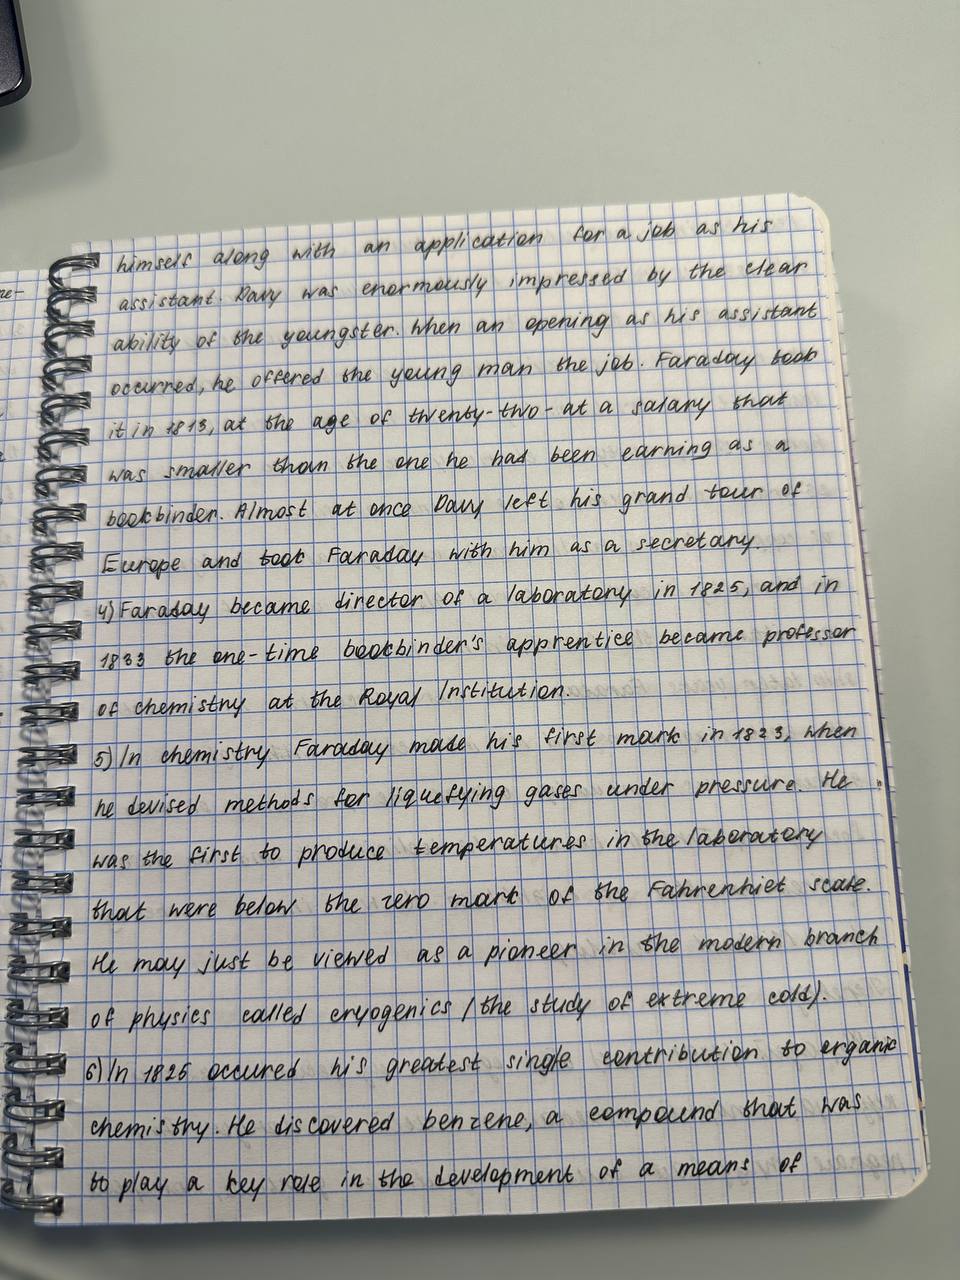 ne-
himself along with an application for a job as his
assistant. Davy was enormously impressed by the clear
ability of the youngster. When an opening as his assistant
occurred, he offered the young man the job. Faraday took
it in 1813, at the age of twenty-two - at a salary that
was smaller than the one he had been earning as a
bookbinder. Almost at once Davy left his grand tour of
Europe and took Faraday with him as a secretary.
4) Faraday became director of a laboratory in 1825, and in
1833 the one-time bookbinder's apprentice became professor
of chemistry at the Royal Institution.
5) In chemistry Faraday made his first mark in 1823, when
he devised methods for liquefying gases under pressure. He
was the first to produce temperatures in the laboratory
that were below the zero mark of the Fahrenhiet scale.
He may just be viewed as a pioneer in the modern branch
of physics called cryogenics (the study of extreme cold).
6) In 1825 occured his greatest single contribution to organic
chemistry. He discovered benzene, a compound that was
to play a key role in the development of a means of